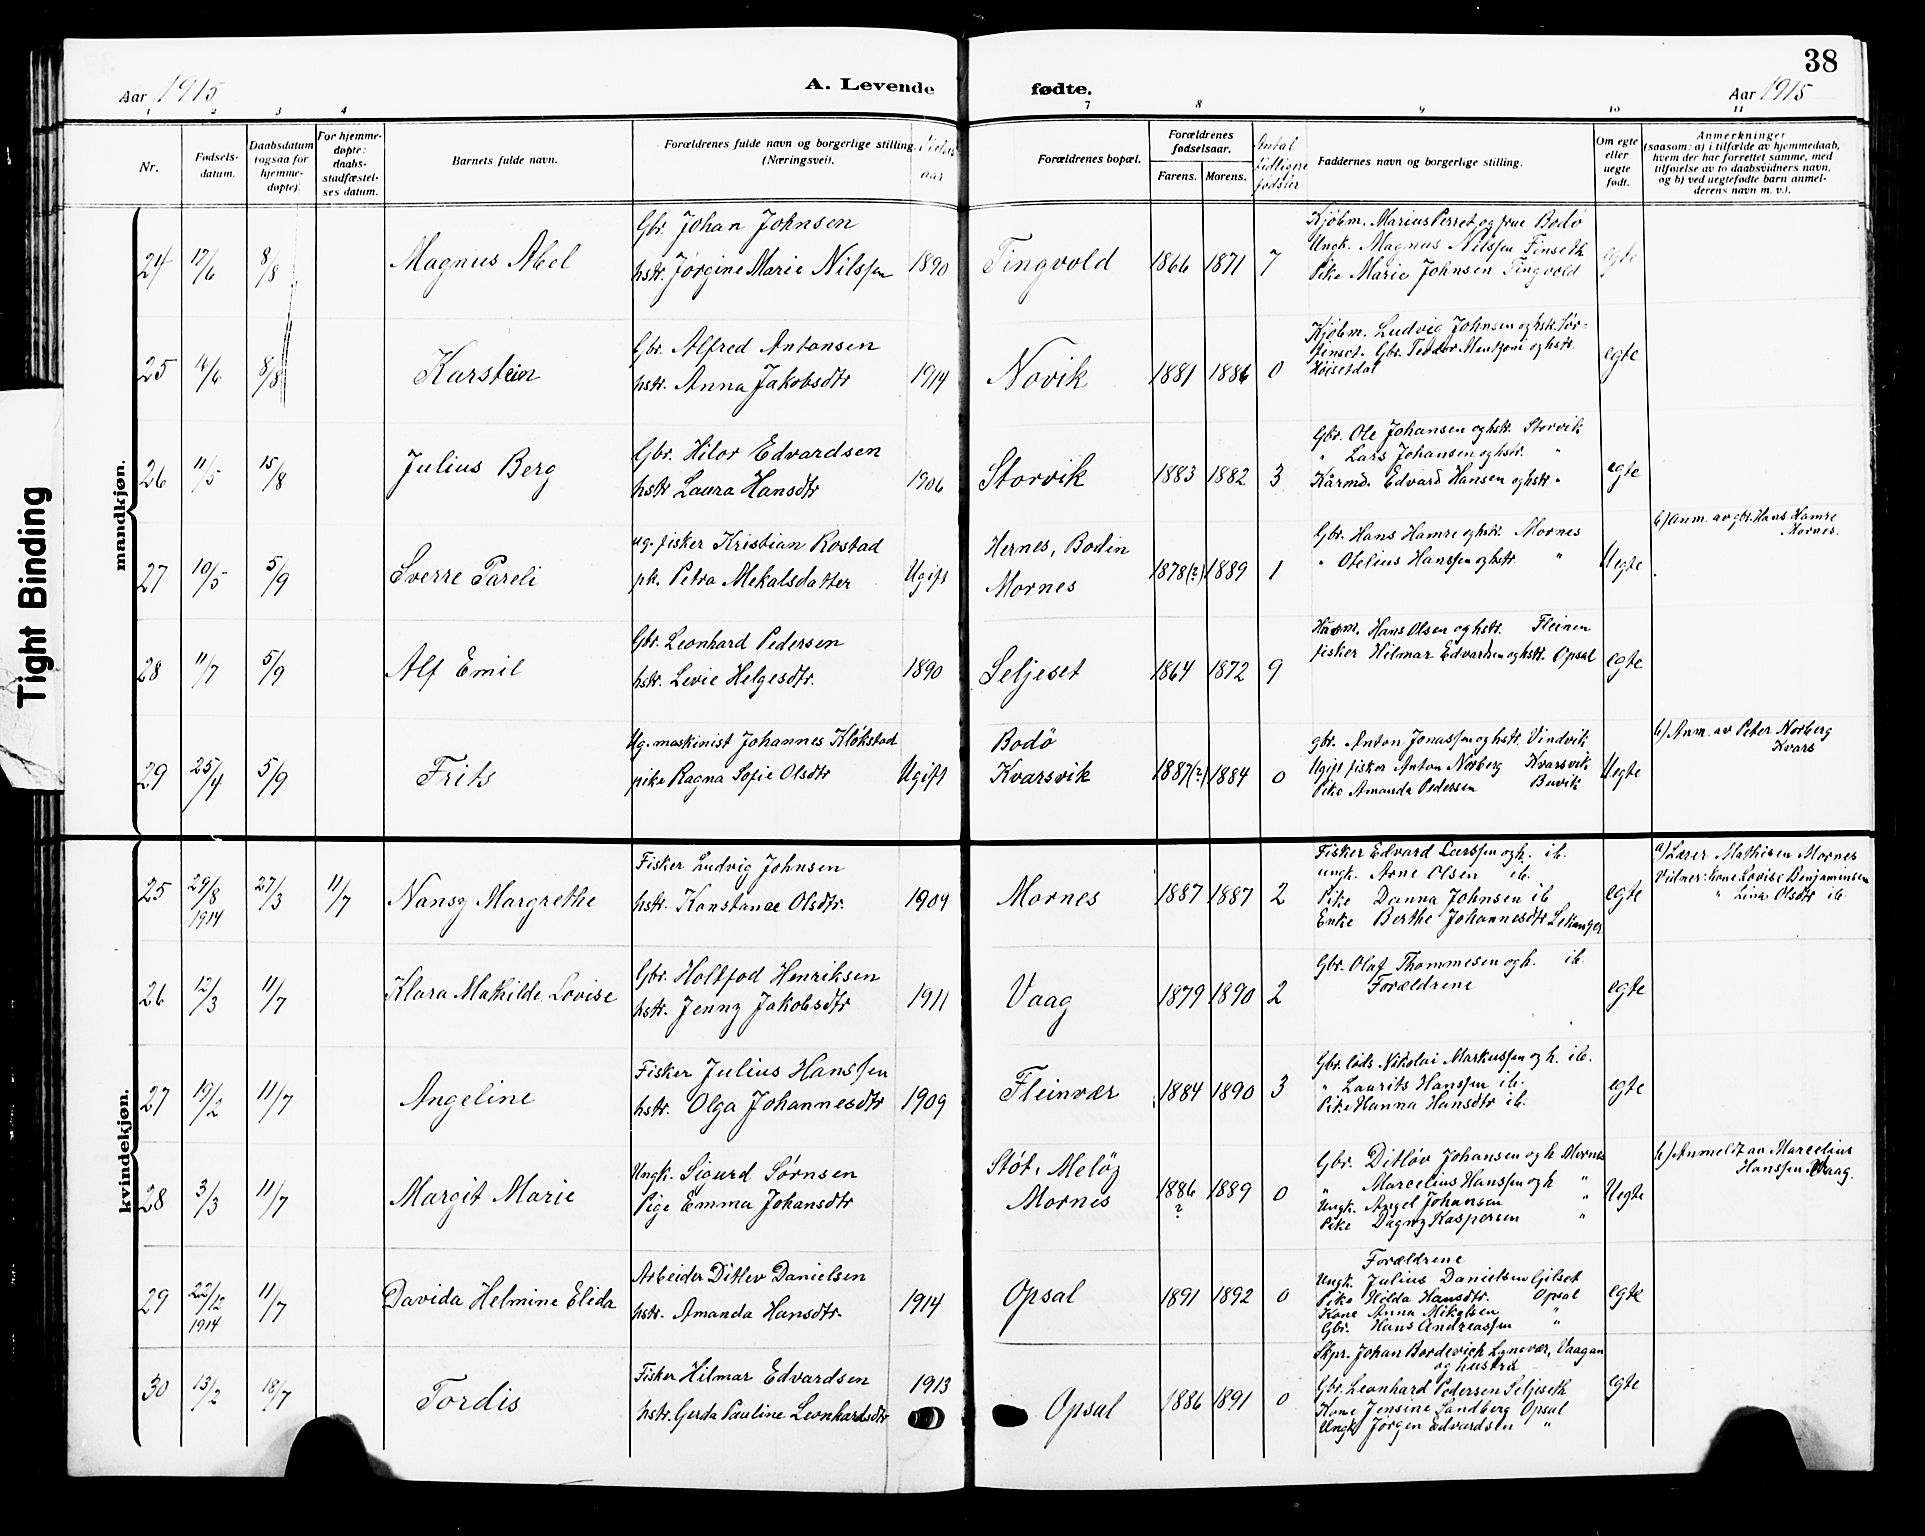 38
Aar 1915 A. Levende fødte. Aar 1915
1 2 3 4 7 8 9 10 11
Nr.
Fødsels-
datum.
Daabsdatum
(ogsaa for
hjemme-
døpte).
For hjemme-
døpte:
daabs-
stadfæstel-
ses datum.
Barnets fulde navn.
Forældrenes fulde navn og borgerlige stilling
(Næringsvei).
Vielses
aar
Forældrenes bopæl.
Forældrenes
fødselsaar.
Farens. Morens.
Antal
tidligere
fødsler
Faddernes navn og borgerlige stilling.
Om egte
eller
uegte
født.
Anmerkninger
(saasom: a) i tilfælde av hjemmedaab,
hvem der har forrettet samme, med
tilføielse av to daabsvidners navn,
og b) ved uegtefødte barn anmel-
derens navn m. v.).
Tight Binding
mandkjøn.
24 17/6 8/8 Magnus Abel
Gbr. Johan Johnsen
hstr. Jørgine Marie Nilssen 1890
Tingvold 1866 1871 7
Kjøbm. Marius Perret og frue Bodø
Ungk. Magnus Nilssen Finseth
Pike Marie Johnsen Tingvold
egte
25 16/6 8/8 Karstein
Gbr. Alfred Antonsen
hstr. Anna Jakobsdtr 1914
Novik 1881 1886 0
Kjøbm. Ludvig Johnsen og hsk. Sør-
fenset. Gbr. Teodor Mentzoni og hstr.
Høisetdal
egte
26 11/5 15/8 Julius Berg
Gbr. Hilor Edvardsen
hstr Laura Hansdtr 1906
Storvik 1883 1882 3
Gbr. Ole Johansen og hstr. Storvik
" Lars Johansen og hstr. "
Kårmd. Edvard Hansen og hstr "
egte
27 10/5 5/9 Sverre Pareli
ug. fisker Kristian Rostad
pk. Petra Mekalsdatter Ugift
Hernes, Bodin
Mornes
1878(?) 1889 1
Gbr. Hans Hamre og hsk. Mornes
" Otelius Hanssen og hstr. "
Uegte
b) Anm. av gbr. Hans Hamre
Mornes.
28 11/7 5/9 Alf Emil
Gbr. Leonhard Pedersen
hstr. Levie Helgesdtr. 1890
Seljeset 1864 1872 9
Kaarm. Hans Olsen og hstr. Fleinen
fisker Hilmar Edvardsen og hstr. Opsal
egte
29 25/4 5/9 Frits
Ug. maskinist Johannes Kløkstad
pike Ragna Sofie Olsdtr Ugift
Bodö
Kvarsvik
1887(?) 1884 0
gbr. Anton Jonassen og hstr. Vindvik
Ugift fisker Anton Norberg Kvarsvik
Pike Amanda Pedersen Buvik
Uegte
b) Anm. av Peter Norberg
Kvars
kvindekjøn.
25 29/8 1914 27/3 11/7 Nansy Margrethe
Fisker Ludvig Johnsen
hstr. Konstanse Olsdtr. 1909
Mornes 1887 1887 2
Fisker Edvard Larssen og h. ib.
ungk. Arne Olsen ib.
Pike Danna Johnsen ib
Enke Berthe Johannesdtr Lekanger
egte
a) Lærer Mathisen Mornes
Vidner: kone Lovise Benjaminsen
" Lina Olsdtr ib.
26 12/3 11/7 Klara Mathilde Lovise
Gbr. Holtfod Henriksen
hstr. Jenny Jakobsdtr 1911
Vaag 1879 1890 2
Gbr. Olaf Thommesen og h. ib.
Forældrene
egte
27 19/2 11/7 Angeline
Fisker Julius Hanssen
hstr. Olga Johannesdtr 1909
Fleinvær 1884 1890 3
Gbr. lods Nikolai Markussen og h. ib.
" Laurits Hanssen ib.
Pike Hanna Hansdtr ib.
egte
28 3/3 11/7 Margit Marie
Ungk. Sigurd Sørnsen
Pige Emma Johansdtr
Støt, Meløy
Mornes
1886 ? 1889 0
Gbr. Ditløv Johansen og h Mornes
" Marcelius Hanssen og h "
Ungk. Angel Johansen "
Pike Dagny Kaspersen "
Uegte
b) Anmeldt av Marcelius
Hanssen Vaag.
29 22/12 1914 11/7 Davida Helmine Elida
Arbeider Ditlev Danielsen
hstr. Amanda Hansdtr. 1914
Opsal 1891 1892 0
Forældrene
Ungk. Julius Danielsen Gjelset
Pike Hilda Hansdtr. Opsal
Kone Anna Mikalsen "
Gbr. Hans Andreassen "
egte
30 13/2 18/7 Tordis
Fisker Hilmar Edvardsen
hstr. Gerda Pauline Leonhardsdtr 1913
Opsal 1886 1891 0
Skpr. Johan Bordevich Lyngvær, Vaagan
og hustru
Gbr. Leonhard Pedersen Seljeseth
Kone Jensine Sandberg Opsal
Ungk Jørgen Edvardsen "
egte